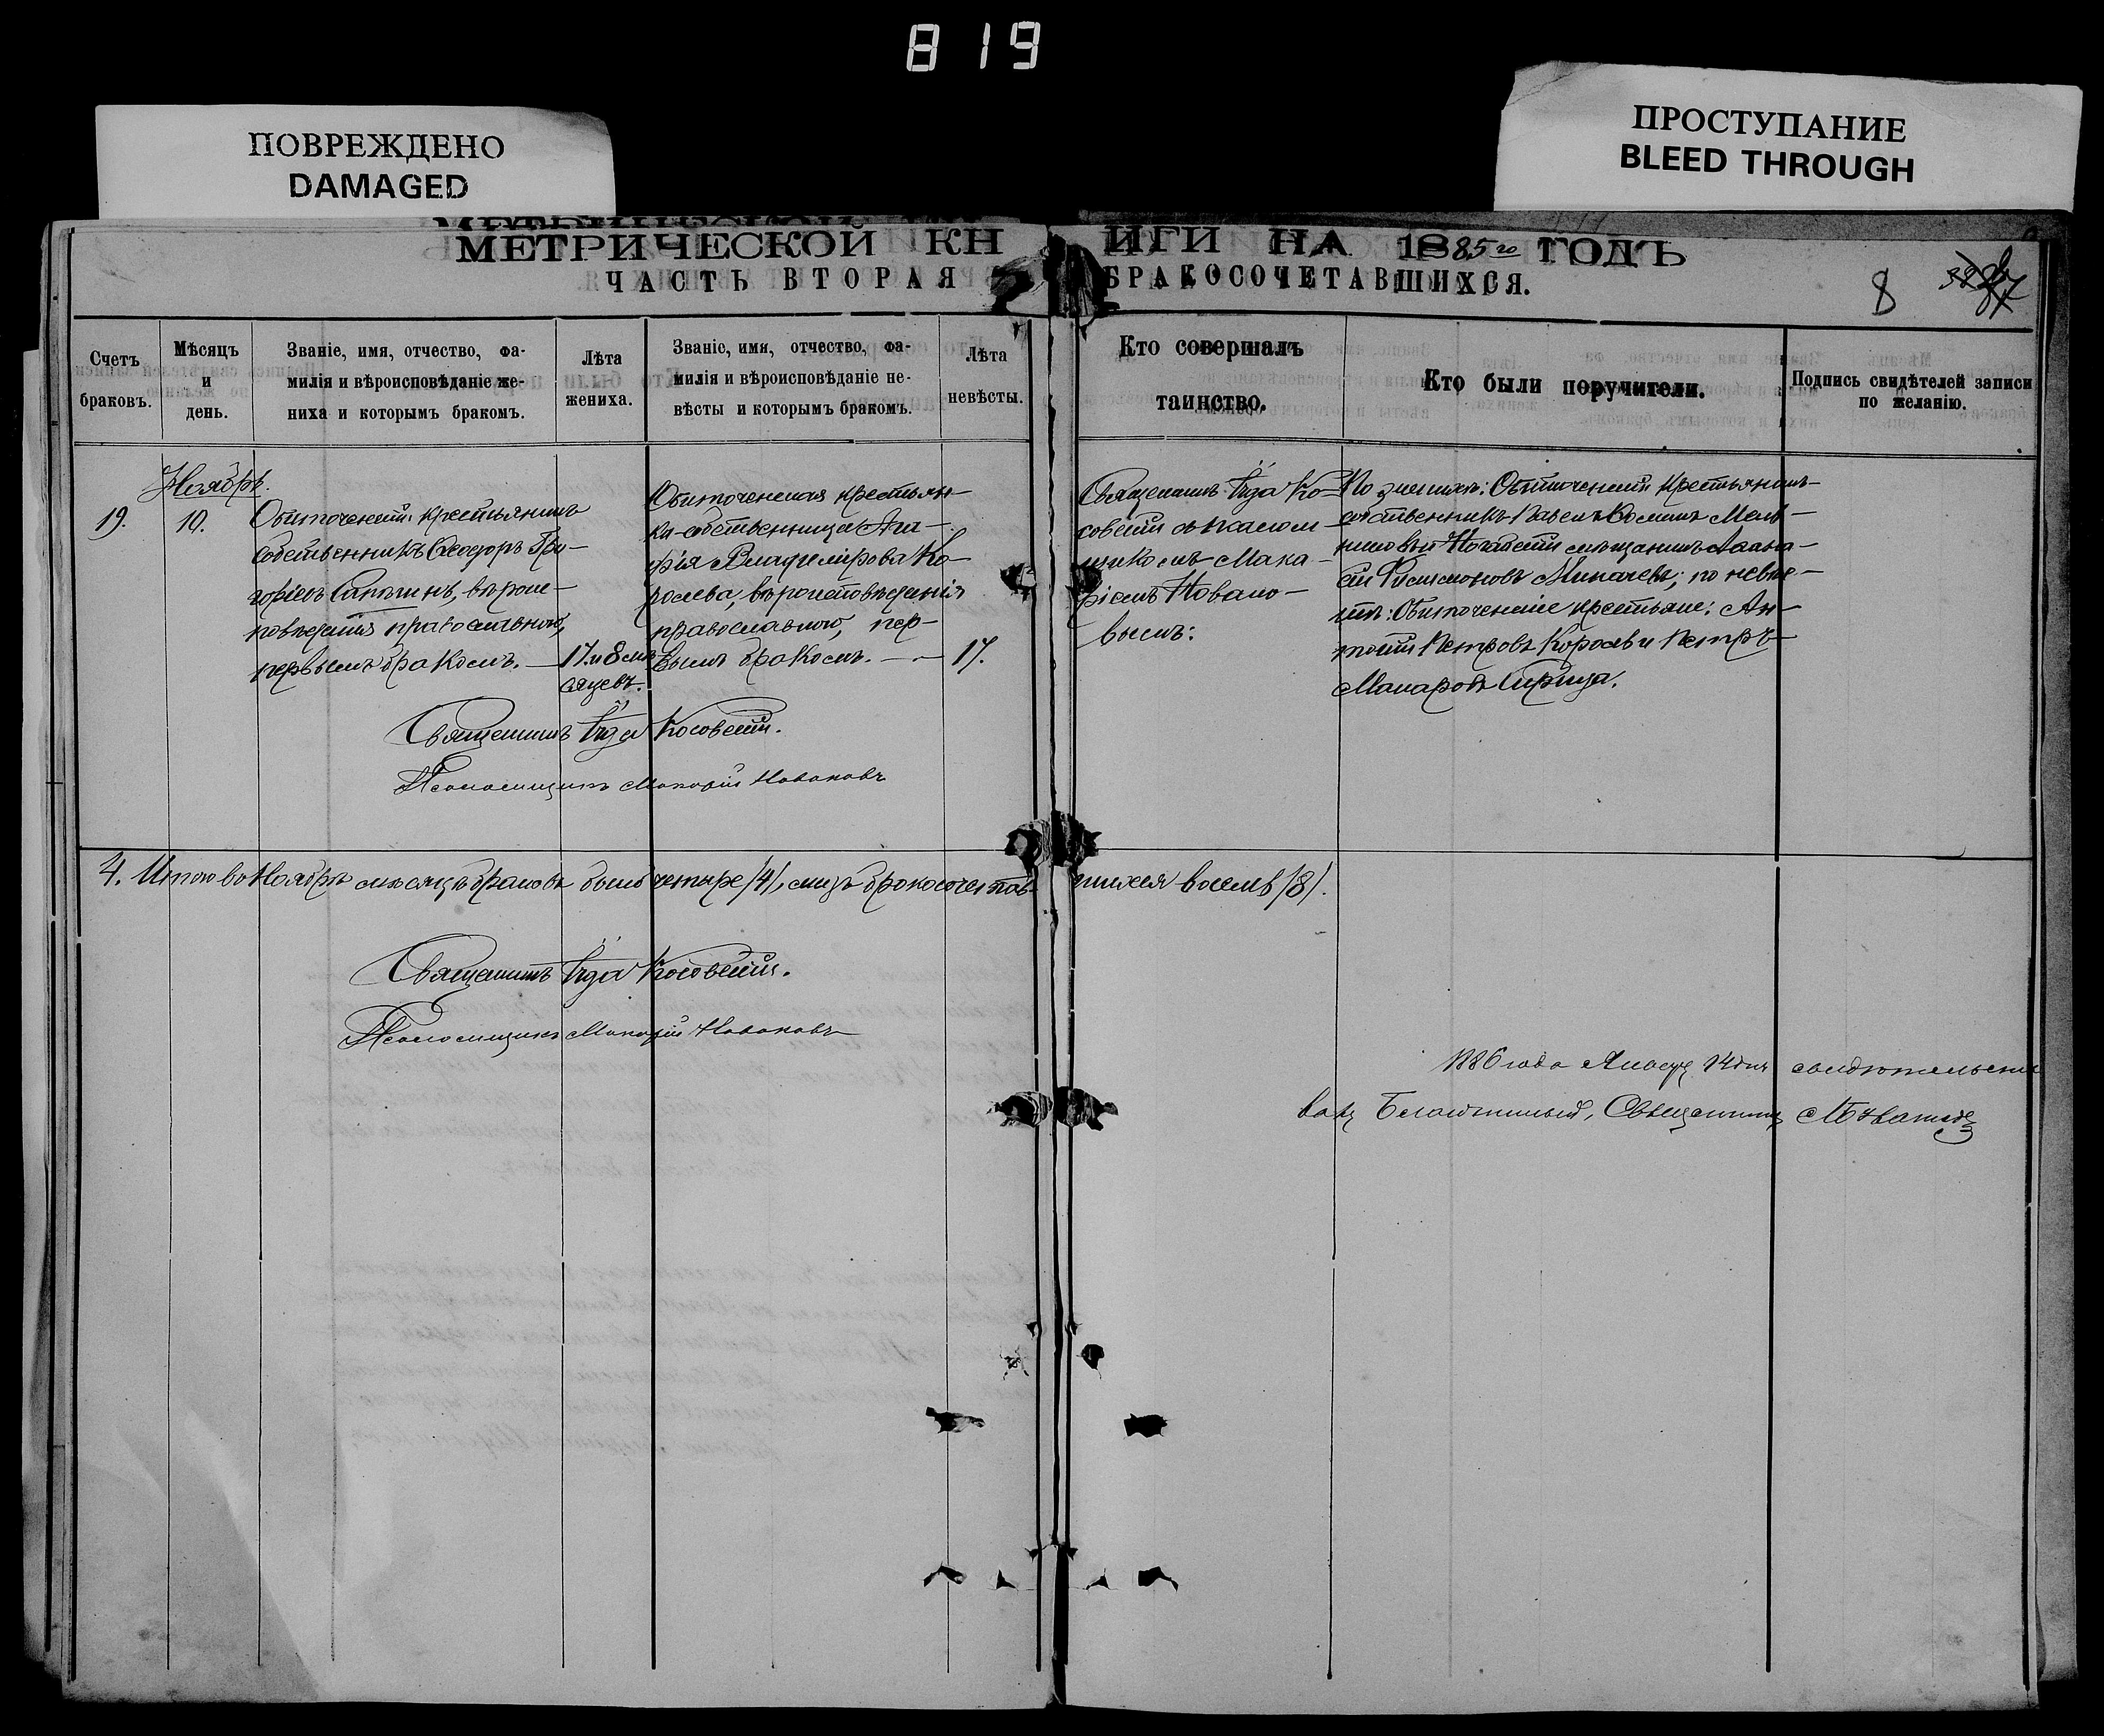 819
ПОВРЕЖДЕНО
DAMAGED
ПРОСТУПАНИЕ
BLEED THROUGH
МЕТРИЧЕСКОЙ КНИГИ НА 1885 го ГОДЪ
ЧАСТЬ ВТОРАЯ БРАКОСОЧЕТАВШИХСЯ.
8
Счетъ
браковъ.
Мѣсяцъ
и
день.
Званіе, имя, отчество, фа-
милія и вѣроисповѣданіе же-
ниха и которымъ бракомъ.
Лѣта
жениха.
Званіе, имя, отчество, фа-
милія и вѣроисповѣданіе не-
вѣсты и которымъ бракомъ.
Лѣта
невѣсты.
Кто совершалъ
таинство.
Кто были поручители.
Подпись свидѣтелей записи
по желанію.
19.
Ноябрь.
10.
Обиточенскій крестьянинъ
собственникъ Ѳеодоръ Гри-
горіевъ вѣроис-
повѣданія православнаго,
первымъ бракомъ. —
17. и 8 мѣ-
сяцевъ.
Обиточенская крестьян-
ка-собственница Ага-
фія Владимірова Ко-
ролева, вѣроисповѣданія
православнаго, пер-
вымъ бракомъ. —
17.
Священникъ Іуда Ко-
совскій съ псалом-
щикомъ Мака-
ріемъ Новако-
вымъ:
По женихѣ: Обиточенскій крестьянинъ
собственникъ Павелъ Мель-
никовъ и Ногайскій мѣщанинъ
Филимоновъ Михачевъ; по невѣс-
тѣ: Обиточенскіе крестьяне: Ан-
тоній Петровъ Король и Петръ
Макаровъ Сирица.
Священникъ Іуда Косовскій.
Псаломщикъ Макарій Новаковъ
4. Итого въ Ноябрѣ мѣсяцѣ браковъ было четыре /4/, лицъ бракосочетав-
шихся восемь /8/.
Священникъ Іуда Косовскій.
Псаломщикъ Макарій Новаковъ
1886 года Января 14 дня свидѣтельство-
валъ Благочинный, Священникъ